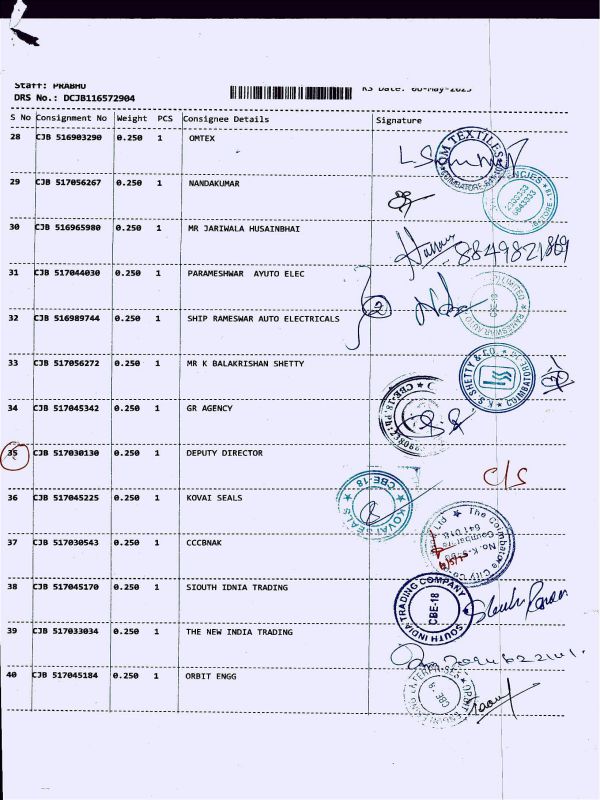 Staff: PRABHU
DRS No.: DCJB116572904
S No Consignment No Weight PCS Consignee Details Signature
28 CJB 516903290 0.250 1 OMTEX
OM TEXTILES
COIMBATORE
29 CJB 517056267 0.250 1 NANDAKUMAR
30 CJB 516965980 0.250 1 MR JARIWALA HUSAINBHAI
8849821869
31 CJB 517044030 0.250 1 PARAMESHWAR AYUTO ELEC
2
32 CJB 516989744 0.250 1 SHIP RAMESWAR AUTO ELECTRICALS
33 CJB 517056272 0.250 1 MR K BALAKRISHAN SHETTY
S K SHETTY & CO.
COIMBATORE
34 CJB 517045342 0.250 1 GR AGENCY
35 CJB 517030130 0.250 1 DEPUTY DIRECTOR
C/S
36 CJB 517045225 0.250 1 KOVAI SEALS
KOVAI SEALS
CBE-18
37 CJB 517030543 0.250 1 CCCBNAK
The Coimbatore City
38 CJB 517045170 0.250 1 SIOUTH IDNIA TRADING
SOUTH INDIA TRADING COMPANY
CBE-18
39 CJB 517033034 0.250 1 THE NEW INDIA TRADING
40 CJB 517045184 0.250 1 ORBIT ENGG